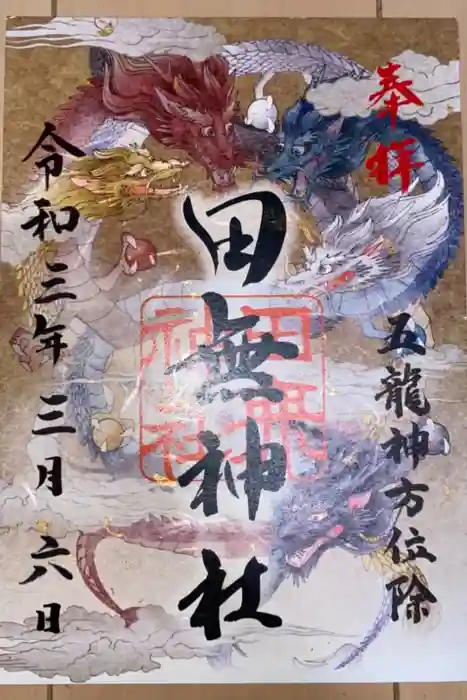 奉拝
五龍神方位除
田無神社
田無神社
令和三年三月六日